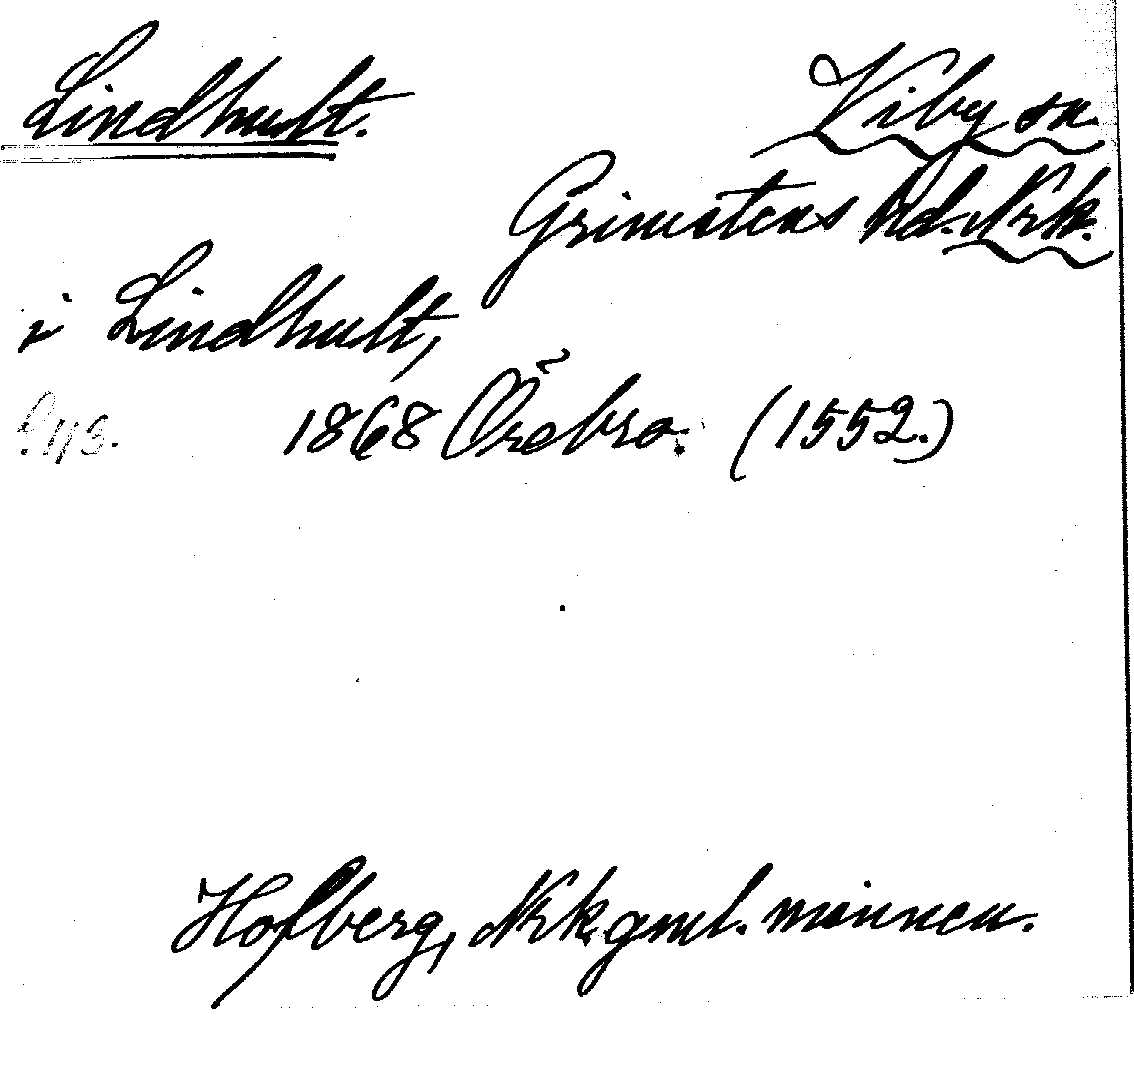 Lindhult.
Viby sn.
Grimstens hd. Nrk.
i Lindhult,
1868 Örebro. (1552.)
Hofberg, Nrk. gml. minnen.